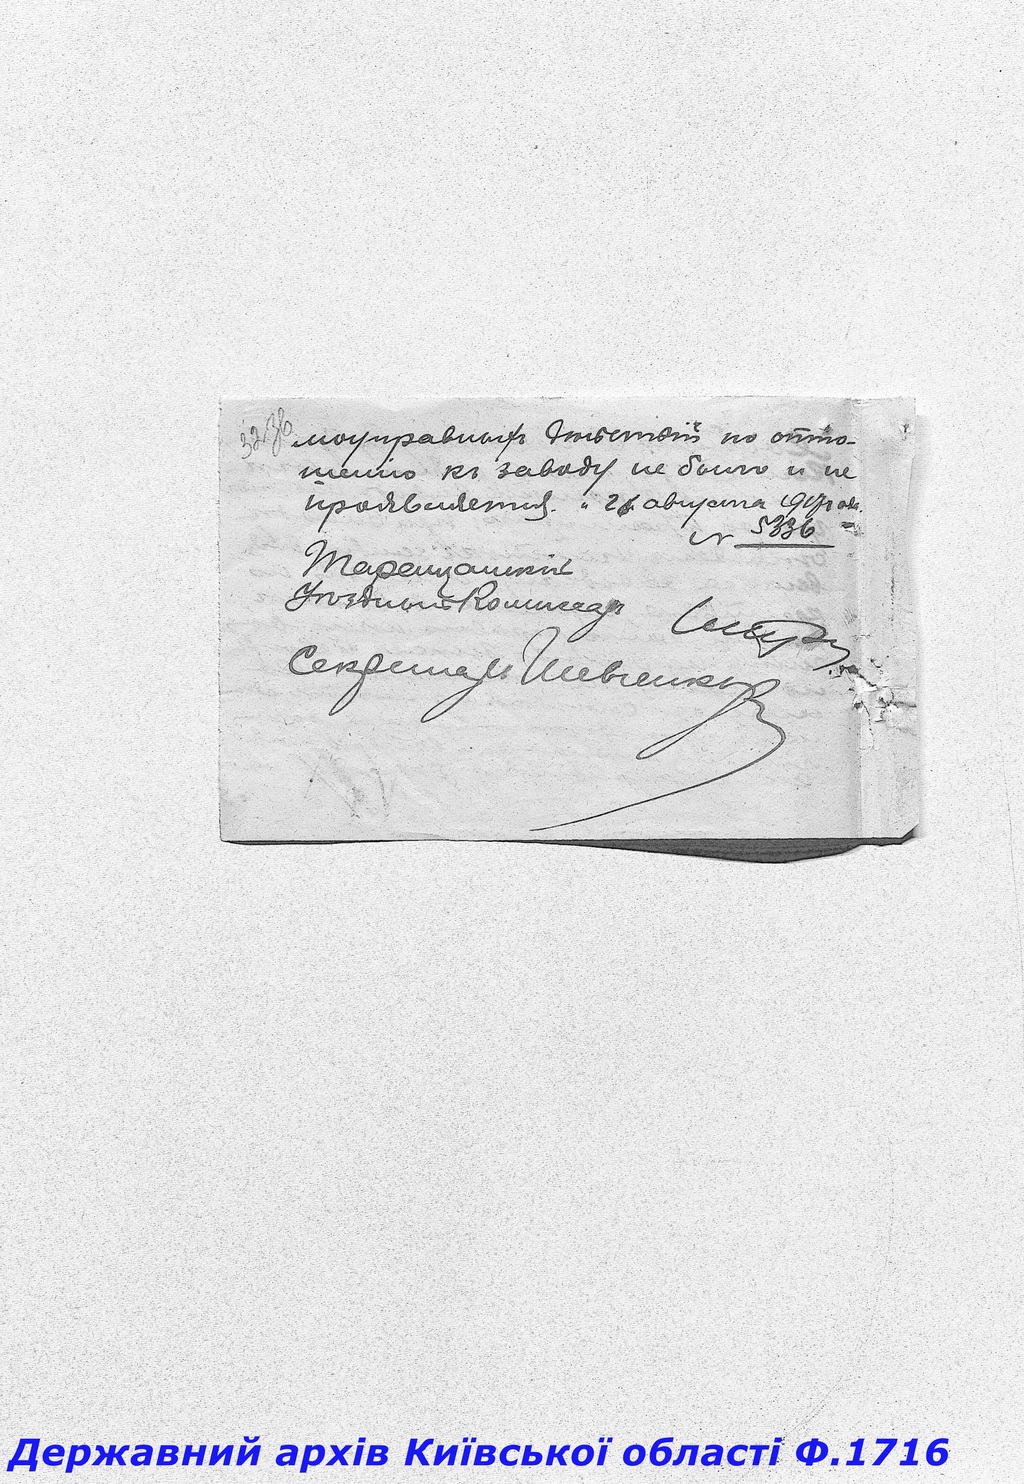 моуправныхъ дѣйствій по отно-
шенію къ заводу не было и не
проявляется. "26 августа 1917 года.
№ 5336
Таращанскій
Уѣздный Комиссаръ
Секретарь Шевченко
Державний архів Київської області Ф.1716